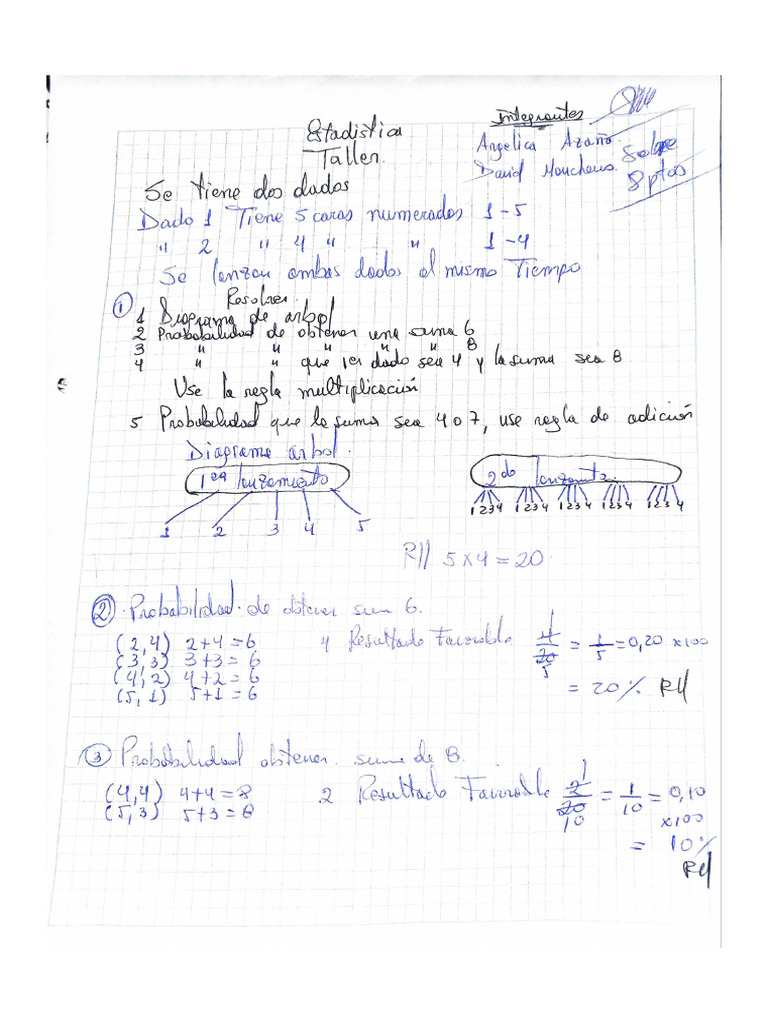 Estadistica
Taller.
Integrantes
Angelica Azaño.
David
Sobre
8 ptos
Se tiene dos dados
Dado 1 Tiene 5 caras numerados 1-5
" 2 " 4 " " 1-4
Se lanzan ambos dados al mismo Tiempo
① Resolver
1 Diagrama de arbol
2 Probabilidad de obtener una suma 6
3 " " " " " 8
4 " " que 1er dado sea 4 y la suma sea 8
Use la regla multiplicación
5 Probabilidad que la suma sea 4 o 7, use regla de adición
Diagrama arbol.
1era lanzamiento
2do lanzamto.
1 2 3 4 5
1 2 3 4 1 2 3 4 1 2 3 4 1 2 3 4 1 2 3 4
R// 5 x 4 = 20
② Probabilidad de obtener sum 6.
(2,4) 2+4=6
(3,3) 3+3=6
(4,2) 4+2=6
(5,1) 5+1=6
4 Resultado Favorable 4/20 = 1/5 = 0,20 x100
= 20% R//
③ Probabilidad obtener suma de 8.
(4,4) 4+4=8
(5,3) 5+3=8
2 Resultado Favorable 2/20 = 1/10 = 0,10
x100
= 10%
R//